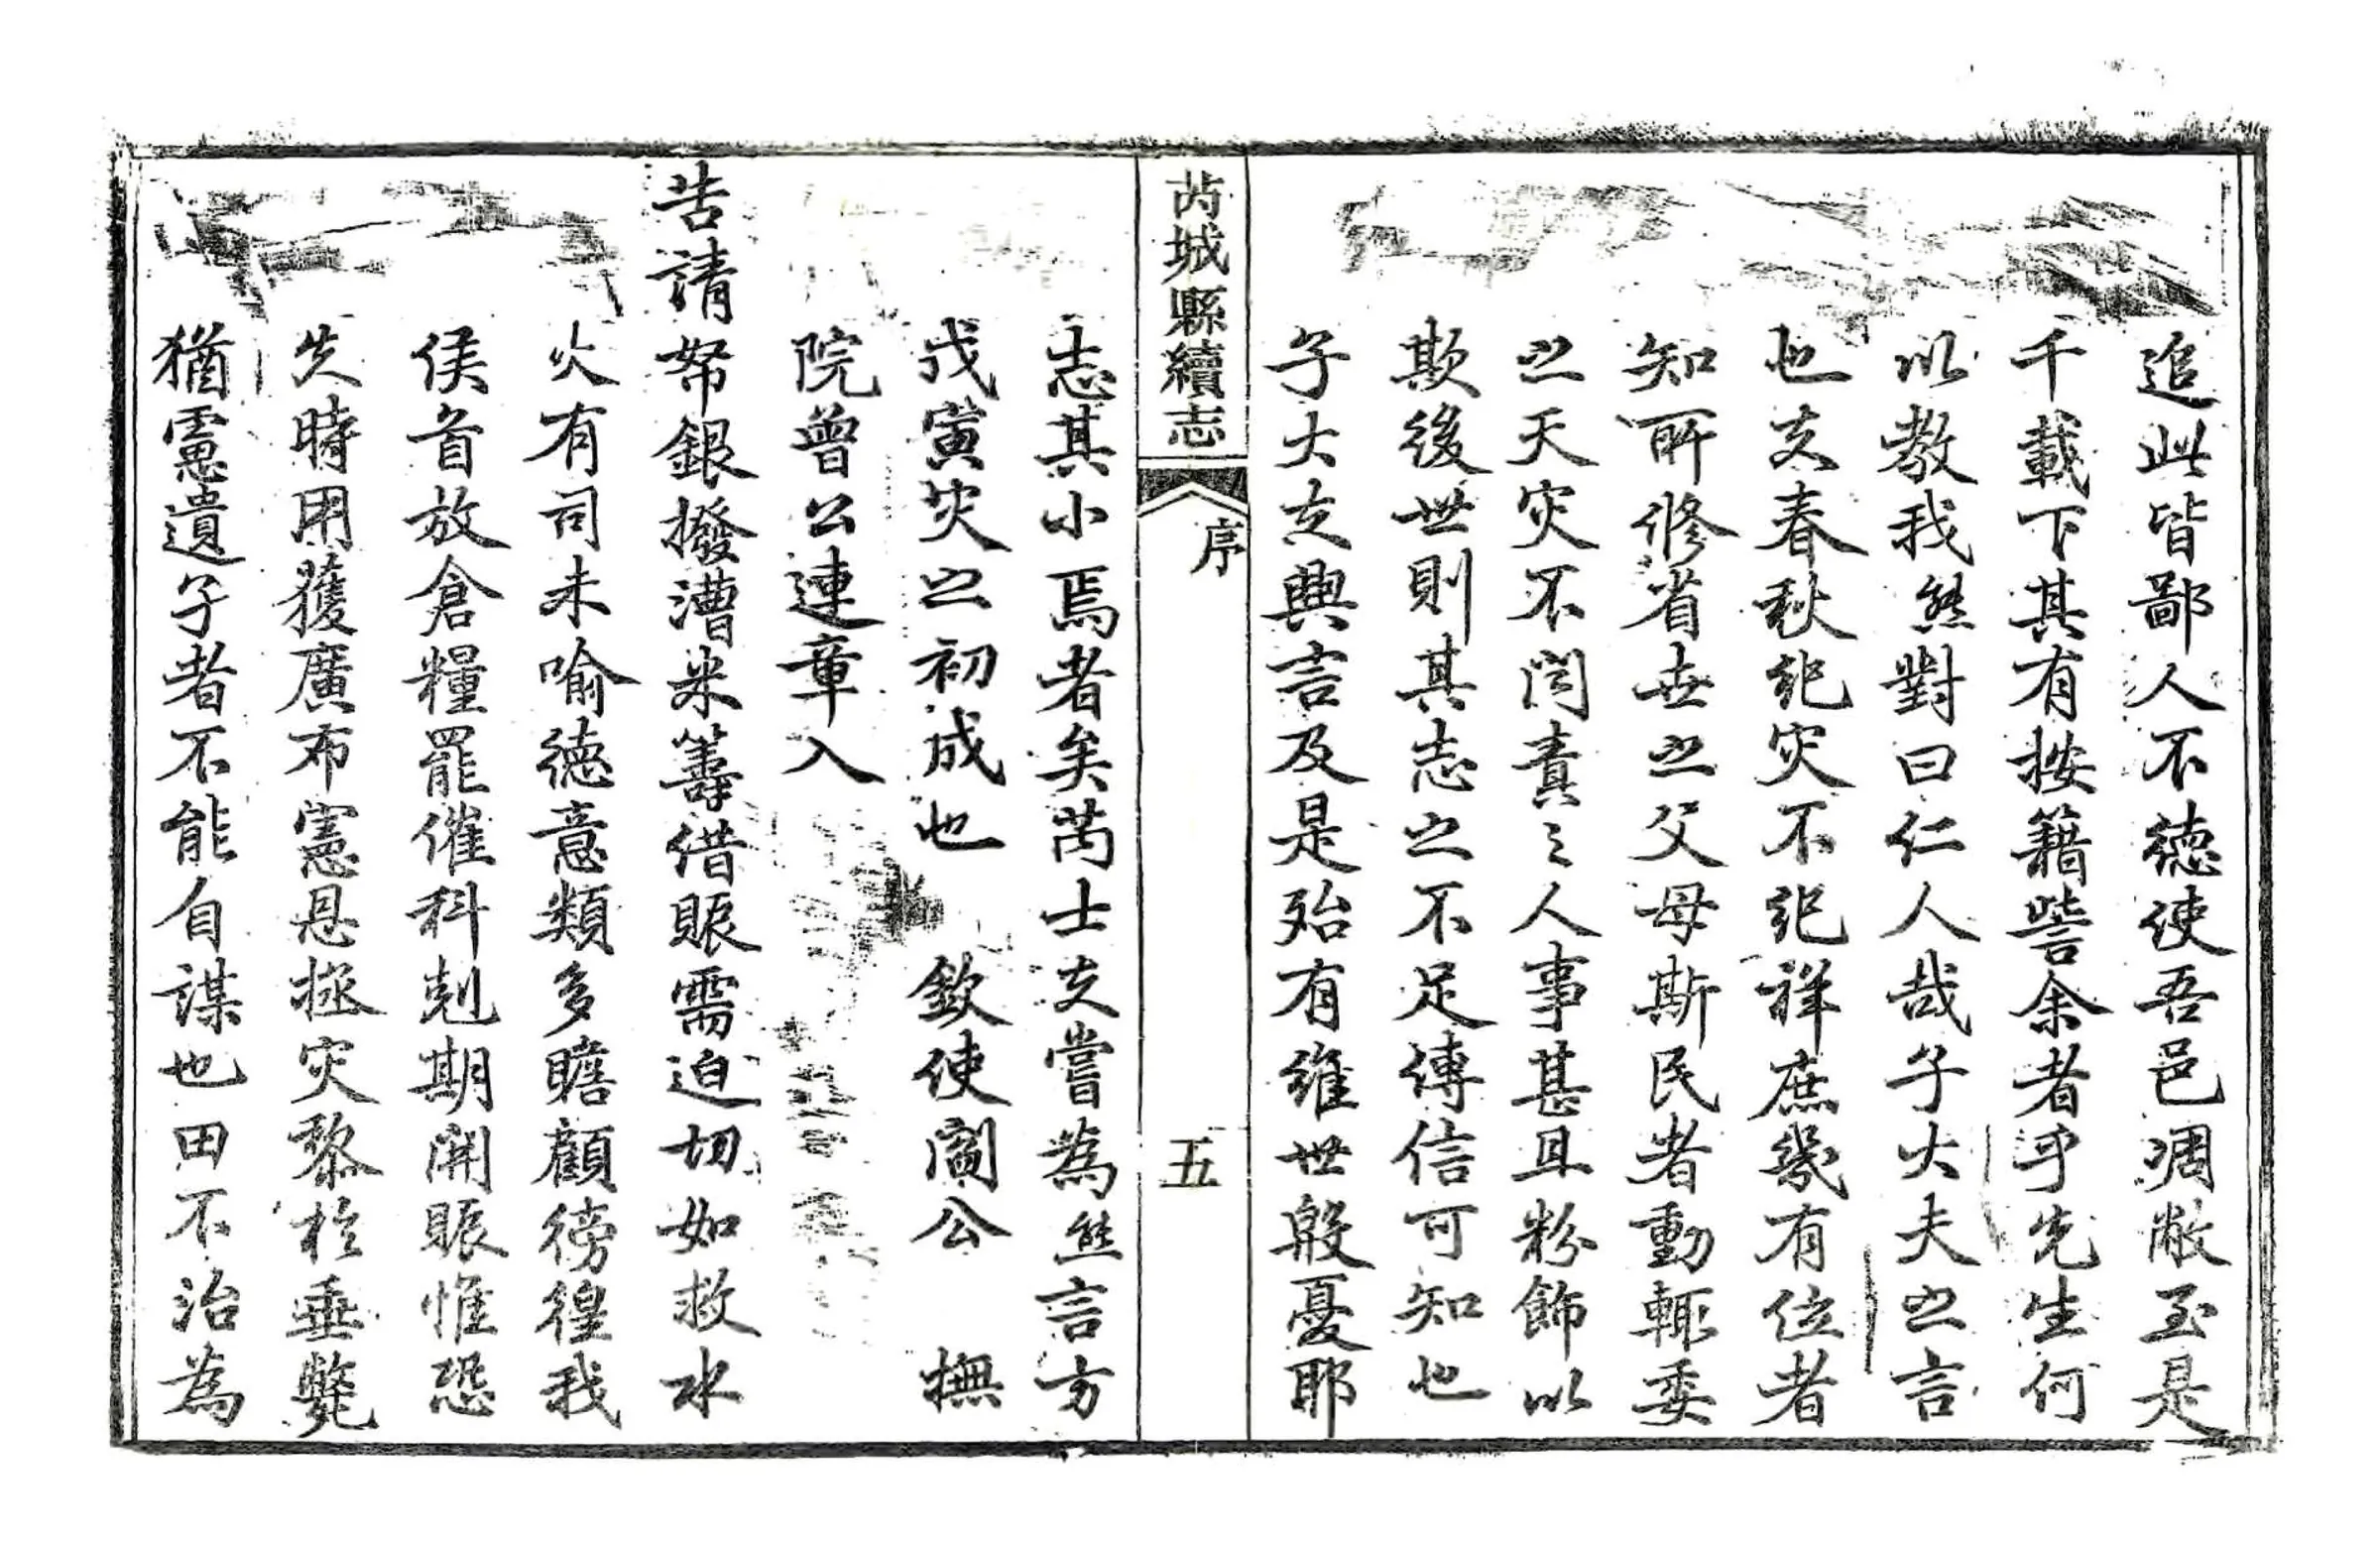 追此皆鄙人不德使吾邑凋敝至是
千載下其有按籍訾余者乎先生何
以教我然對曰仁人哉子大夫之言
也夫春秋紀灾不紀祥庶幾有位者
知所修省世之父母斯民者動輒委
之天灾不関責之人事甚且粉飾以
欺後世則其志之不足傳信可知也
子大夫興言及是殆有維世殷憂耶
芮城縣續志
序
五
志其小焉者矣芮士夫嘗為然言方
戊寅灾之初成也 欽使閻公 撫
院曾公連章入
告請帑銀撥漕米籌借賑需迫切如救水
火有司未喻德意類多瞻顧徬徨我
侯首放倉糧罷催科剋期開賑惟恐
失時用獲廣布憲恩拯灾黎於垂斃
猶慮遺孑者不能自謀也田不治為